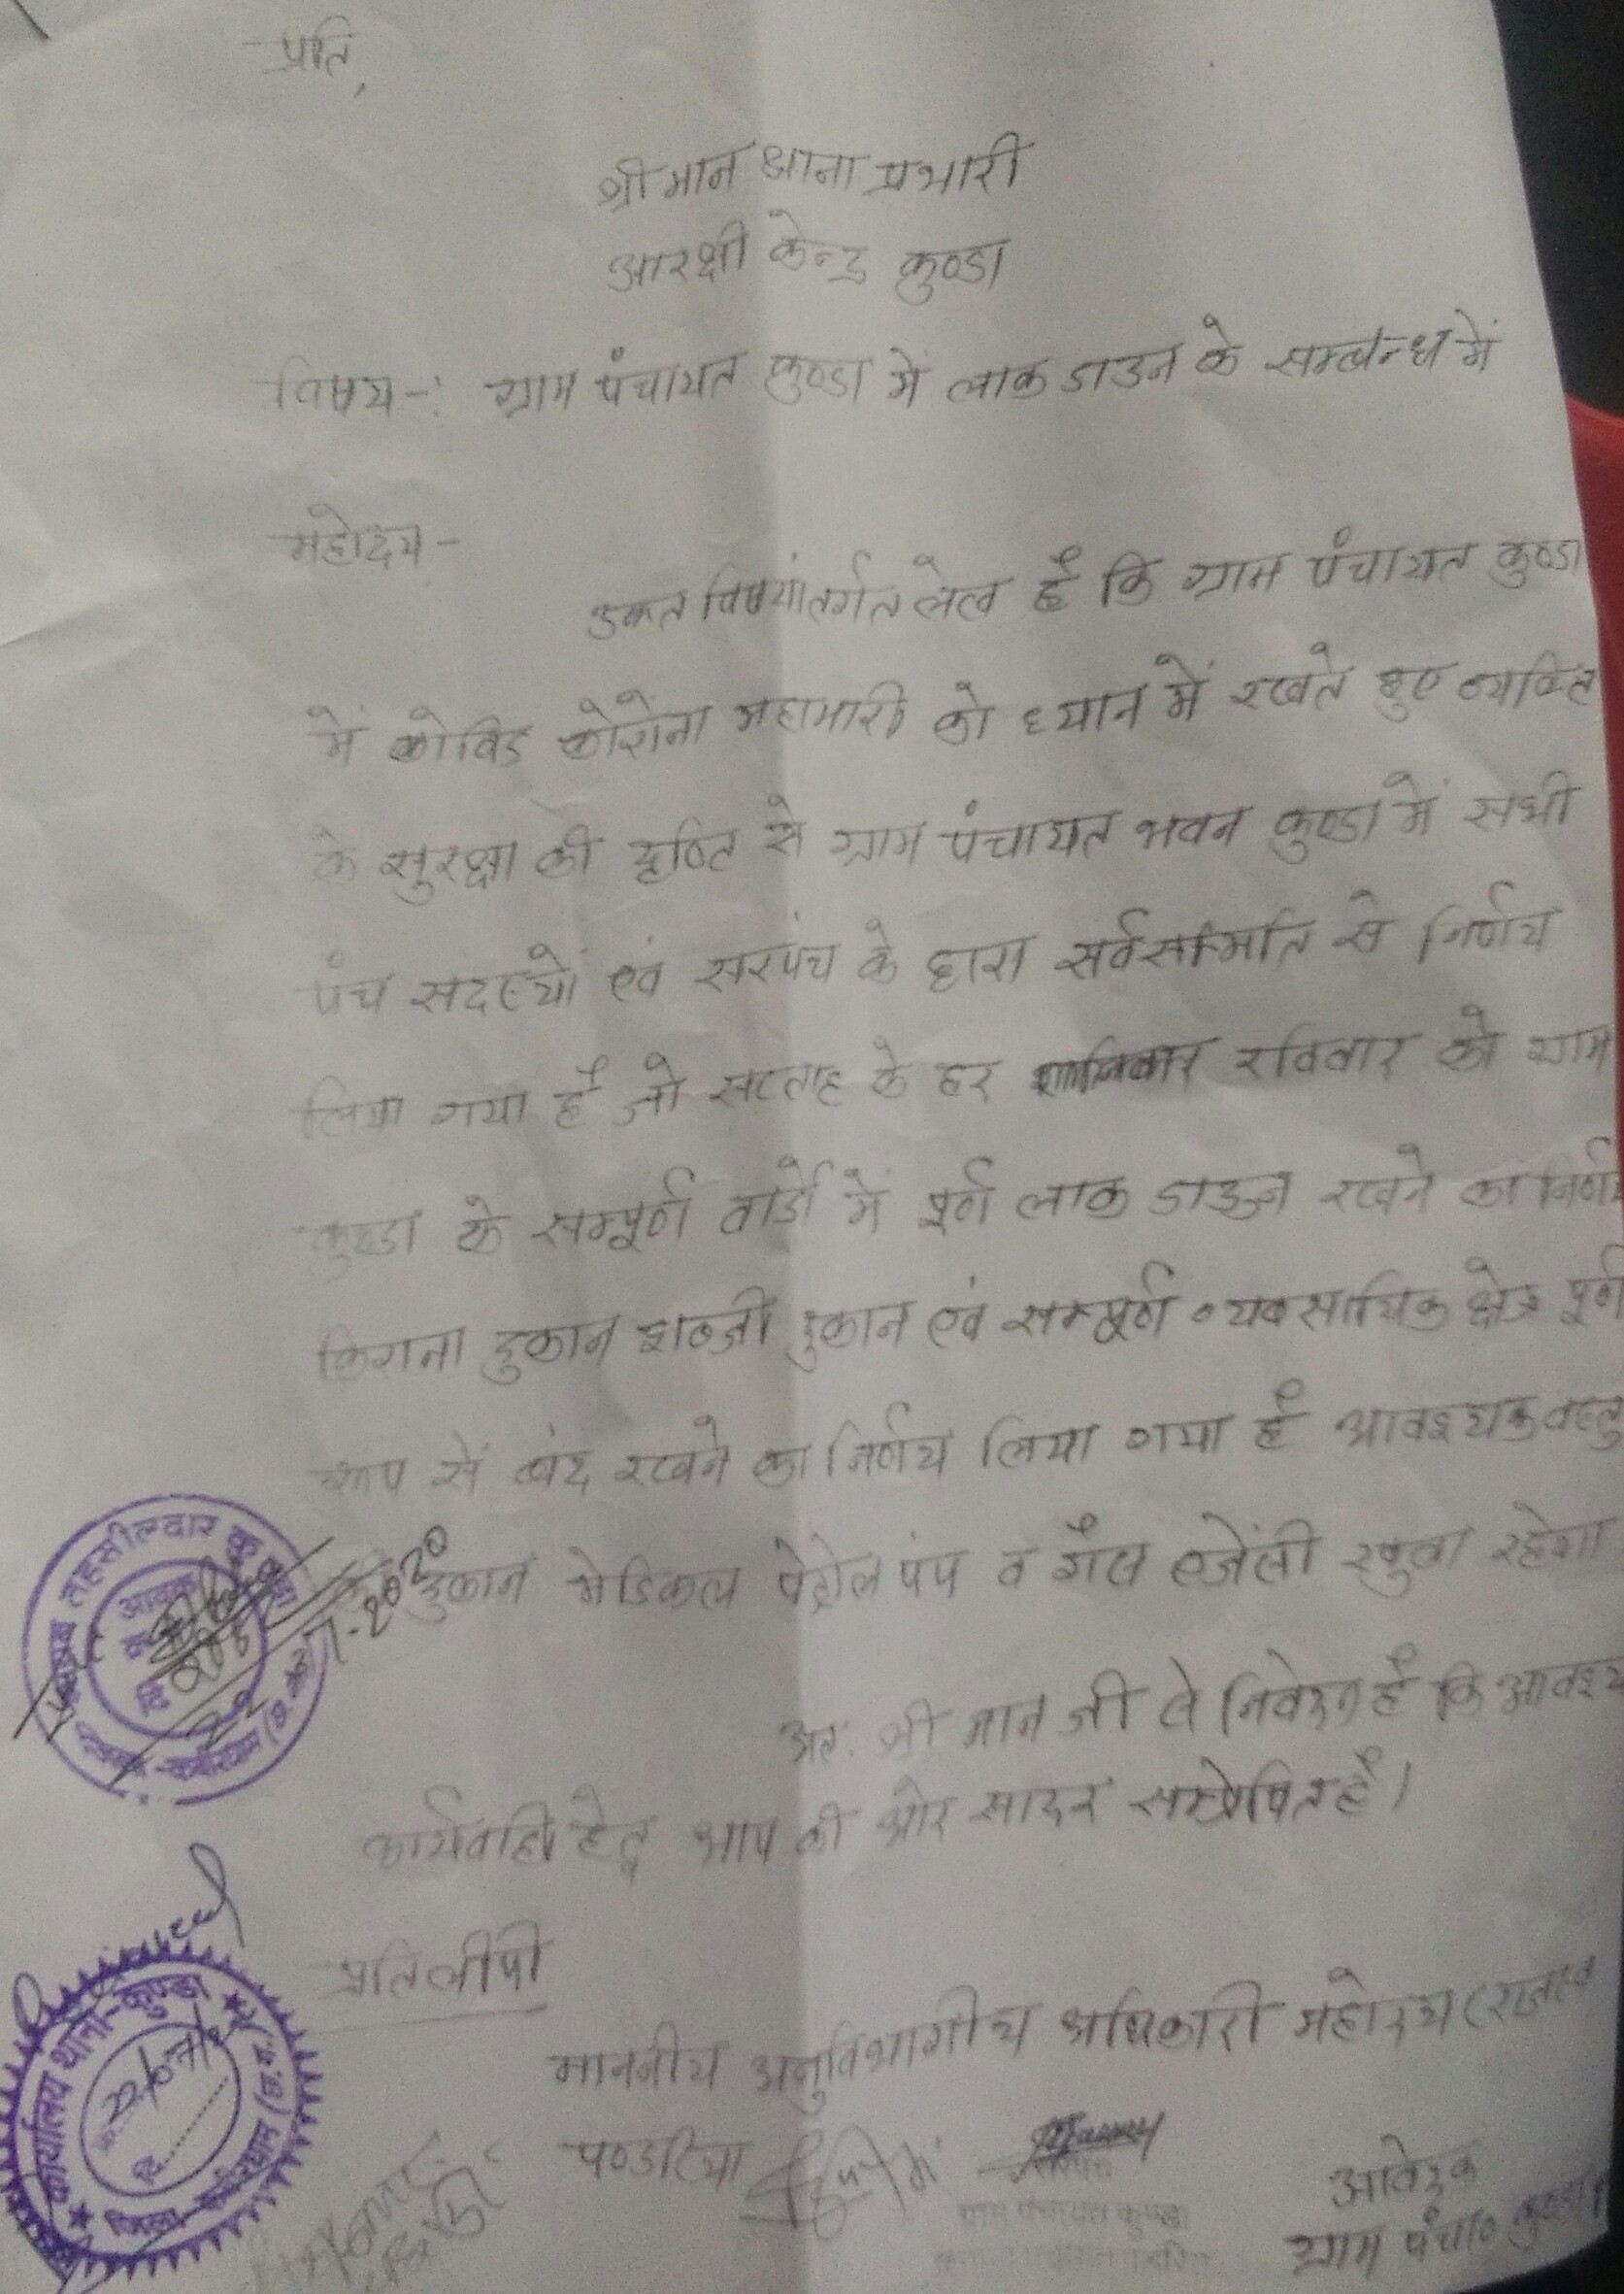 प्रति,
श्रीमान थाना प्रभारी
आरक्षी केन्द्र कुण्डा
विषय-: ग्राम पंचायत कुण्डा में लाक डाउन के सम्बन्ध में
महोदय-
उक्त विषयांतर्गत लेख है कि ग्राम पंचायत कुण्डा
में कोविड कोरोना महामारी को ध्यान में रखते हुए व्यक्ति
के सुरक्षा की दृष्टि से ग्राम पंचायत भवन कुण्डा में सभी
पंच सदस्यों एवं सरपंच के द्वारा सर्वसम्मति से निर्णय
लिया गया है जो सप्ताह के हर शनिवार रविवार को ग्राम
कुण्डा के सम्पूर्ण वार्डो में पूर्ण लाक डाउन रखने का निर्णय
किराना दुकान शब्जी दुकान एवं सम्पूर्ण व्यवसायिक क्षेत्र पूर्ण
रूप सें बंद रखने का निर्णय लिया गया है आवश्यक वस्तु
दुकान मेडिकल पेट्रोल पंप व गैस एजेंसी खुला रहेगा
अतः श्री मान जी से निवेदन है कि आवश्य
कार्यवाही हेतु आप की ओर सादर सम्प्रेषित है।
प्रतिलीपी
माननीय अनुविभागीय अधिकारी महोदय (राजस्व
पण्डरिया
आवेदक
ग्राम पंचा० कुण्डा
सरपंच
ग्राम पंचायत कुण्डा
तहसीलदार
आवक
दि
7-2020
कार्यालय थाना-कुण्डा
जिला कबीरधाम (छ.ग.)
22/07/
दि.